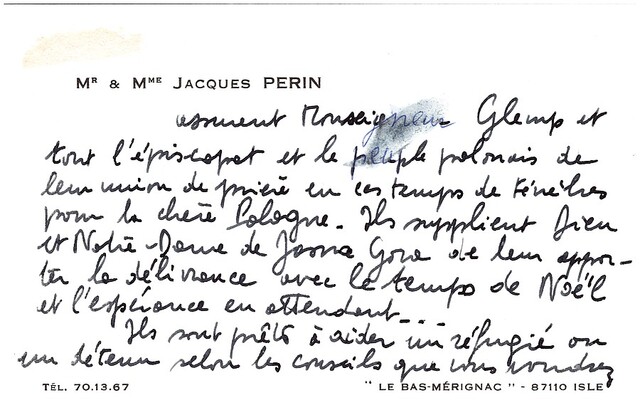 Mr & Mme Jacques PERIN
assurent Monseigneur Glemp et
tout l'épiscopat et le peuple polonais de
leur union de prière en ces temps de ténèbres
pour la chère Pologne. Ils supplient Dieu
et Notre-Dame de Jasna Gora de leur appor-
ter la délivrance avec le temps de Noël
et l'espérance en attendant...
Ils sont prêts à aider un réfugié ou
un détenu selon les conseils que vous voudrez
TÉL. 70.13.67 " LE BAS-MÉRIGNAC " - 87110 ISLE